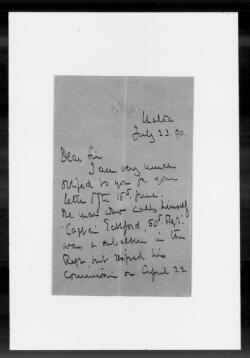 Malta
July 23. 90.
Dear Sir
I am very much
obliged to you for your
letter of the 15th June.
The man who calls himself
"Captain Eckford, 50th Regt."
was a subaltern in this
Regt but resigned his
Commission on April 22